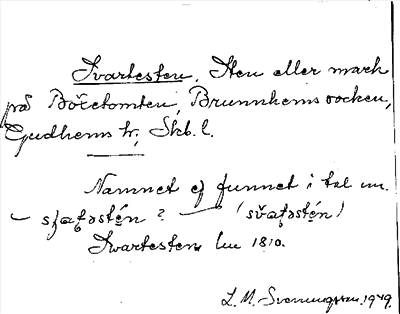 Svartesten. Sten eller mark
på Böletomten, Brunnhems socken,
Gudhems hr, Skb. l.
Namnet ej funnet i tal un.
– sṣaʈəstén? – (svaʈəstén)
Svartesten Lm 1810.
L. M. Svenungsson. 1949.